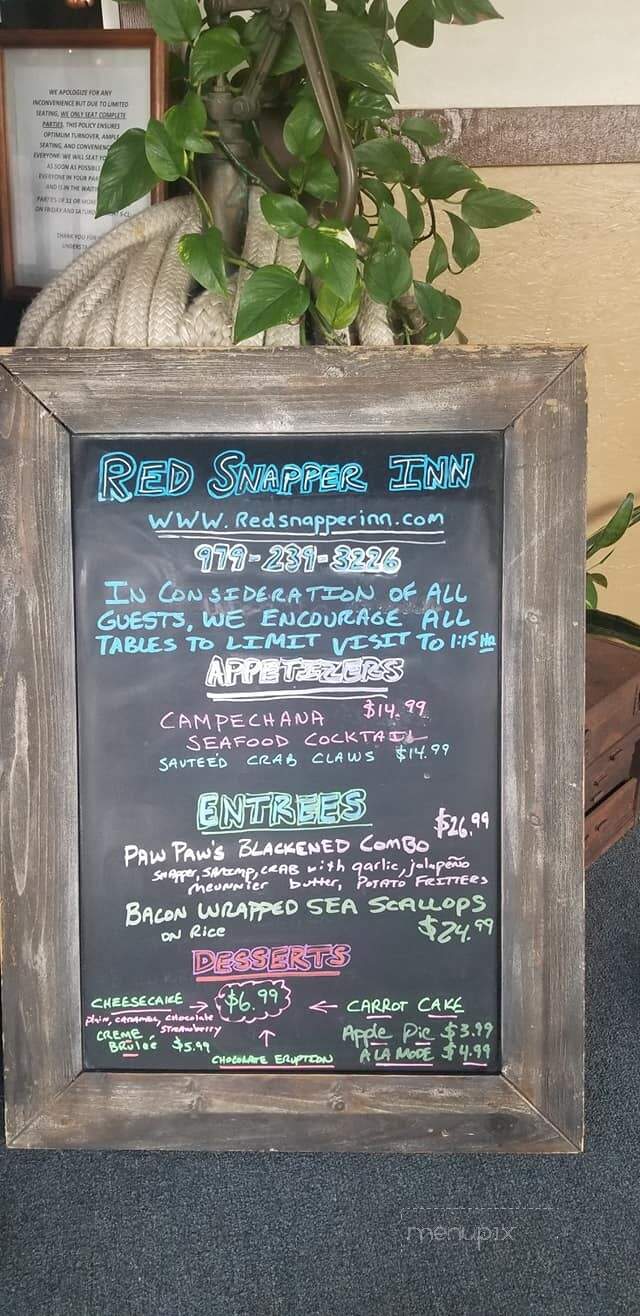 WE APOLOGIZE FOR ANY
INCONVENIENCE BUT DUE TO LIMITED
SEATING, WE ONLY SEAT COMPLETE
PARTIES. THIS POLICY ENSURES
OPTIMUM TURNOVER, AMPLE
SEATING, AND CONVENIENCE
EVERYONE. WE WILL SEAT YO
AS SOON AS POSSIBLE
EVERYONE IN YOUR PAR
AND IS IN THE WAITI
PARTIES OF 11 OR MORE
ON FRIDAY AND SATUR
THANK YOU FOR
UNDERSTA
RED SNAPPER INN
WWW.Redsnapperinn.com
979-239-3226
IN CONSIDERATION OF ALL
GUESTS, WE ENCOURAGE ALL
TABLES TO LIMIT VISIT TO 1:15 HR
APPETIZERS
CAMPECHANA $14.99
SEAFOOD COCKTAIL
SAUTEED CRAB CLAWS $14.99
ENTREES
$26.99
PAW PAW'S BLACKENED COMBO
SNAPPER, SHRIMP, CRAB with garlic, jalapeño
meunnier butter, POTATO FRITTERS
BACON WRAPPED SEA SCALLOPS
ON Rice $24.99
DESSERTS
CHEESECAKE → $6.99 ← CARROT CAKE
plain, caramel, chocolate
strawberry
CREME
BRULEE $5.99
↑
CHOCOLATE ERUPTION
Apple Pie $3.99
A LA MODE $4.99
menupix